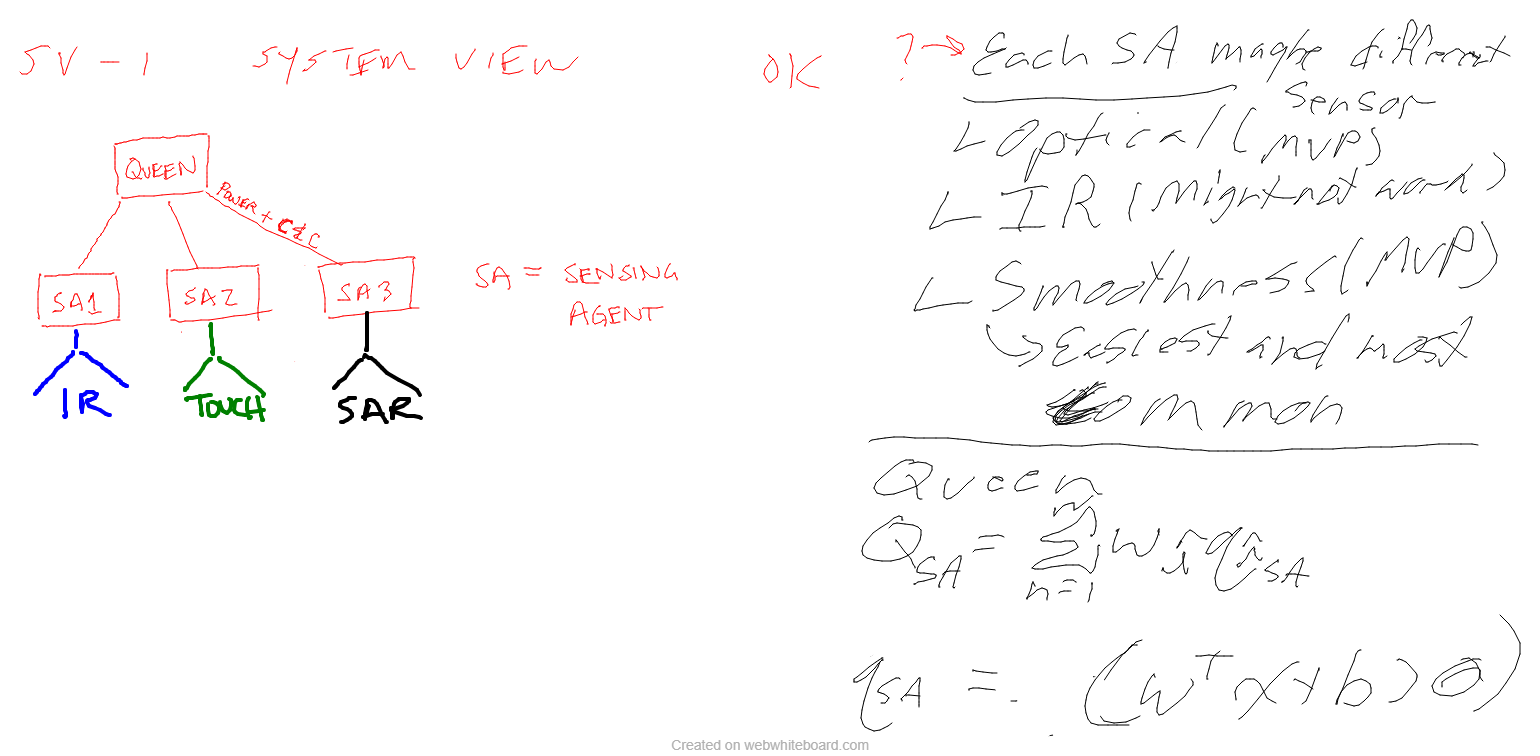 SV - 1 SYSTEM VIEW
OK
QUEEN
POWER + C&C
SA1
SA2
SA3
IR
TOUCH
SAR
SA = SENSING
AGENT
? → Each SA maybe different
Sensor
Optical (MVP)
IR (Might not work)
Smoothness (MVP)
→ Easiest and most
common
Queen
Q_SA = Σ_{n=1}^{n} w_i q_{i SA}
q_SA = . (w^T x + b > 0)
Created on webwhiteboard.com